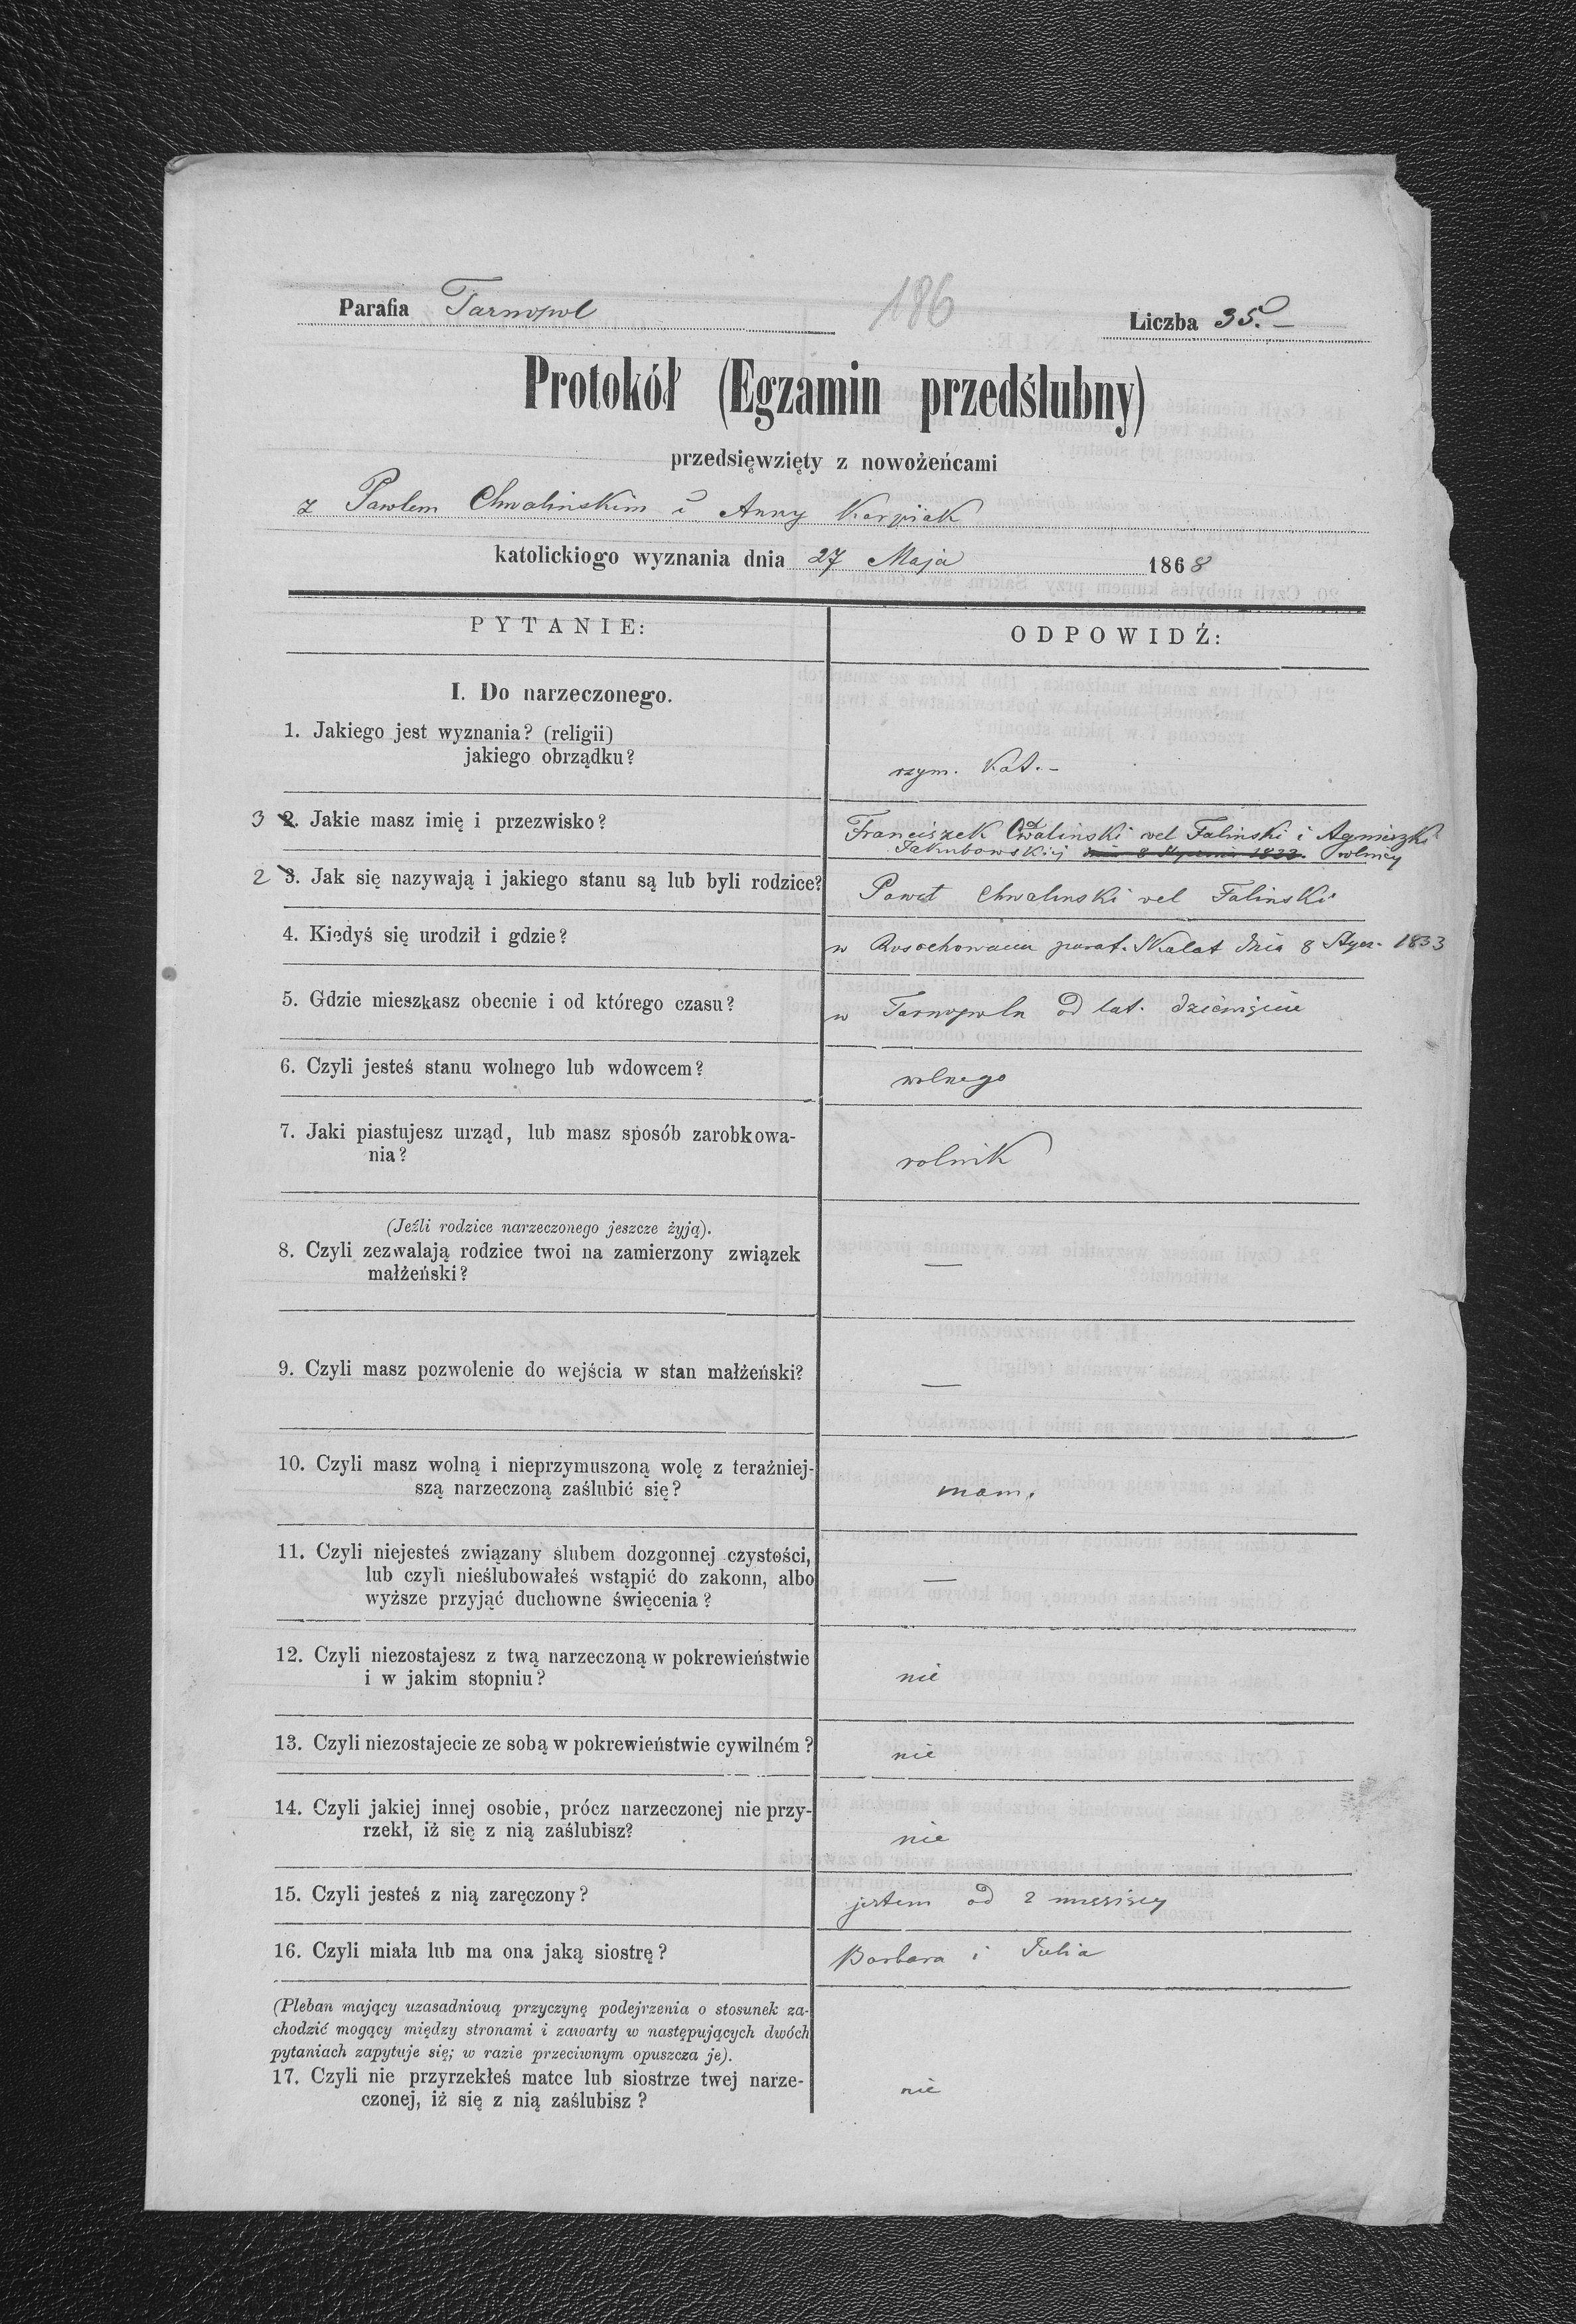 186
Parafia Tarnopol Liczba 35.-
Protokół (Egzamin przedślubny)
przedsięwzięty z nowożeńcami
z Pawłem Chwalińskim i Anny Karpiak
katolickiogo wyznania dnia 27 Maja 1868
PYTANIE: ODPOWIDŹ:
I. Do narzeczonego.
1. Jakiego jest wyznania? (religii)
jakiego obrządku? rzym. Kat.-
3 2. Jakie masz imię i przezwisko? Franciszek Chwaliński vel Faliński i Agnieszki
Jakubowskiej dnia 8 Stycznia 1833. rolnicy
2 3. Jak się nazywają i jakiego stanu są lub byli rodzice? Paweł Chwalinski vel Falinski
4. Kiedyś się urodził i gdzie? w Rosochowacu paraf. Skalat dnia 8 Stycz. 1833
5. Gdzie mieszkasz obecnie i od którego czasu? w Tarnopolu od lat. dziewięciu
6. Czyli jesteś stanu wolnego lub wdowcem? wolnego
7. Jaki piastujesz urząd, lub masz sposób zarobkowa-
nia? rolnik
(Jeźli rodzice narzeczonego jeszcze żyją).
8. Czyli zezwalają rodzice twoi na zamierzony związek
małżeński? —
9. Czyli masz pozwolenie do wejścia w stan małżeński? —
10. Czyli masz wolną i nieprzymuszoną wolę z teraźniej-
szą narzeczoną zaślubić się? mam.
11. Czyli niejesteś związany ślubem dozgonnej czystości,
lub czyli nieślubowałeś wstąpić do zakonn, albo —
wyższe przyjąć duchowne święcenia?
12. Czyli niezostajesz z twą narzeczoną w pokrewieństwie
i w jakim stopniu? nie
13. Czyli niezostajecie ze sobą w pokrewieństwie cywilném? nie
14. Czyli jakiej innej osobie, prócz narzeczonej nie przy-
rzekł, iż się z nią zaślubisz? nie
15. Czyli jesteś z nią zaręczony? jestem od 2 miesięcy
16. Czyli miała lub ma ona jaką siostrę? Barbara i Julia
(Pleban mający uzasadnioną przyczynę podejrzenia o stosunek za-
chodzić mogący między stronami i zawarty w następujących dwóch
pytaniach zapytuje się; w razie przeciwnym opuszcza je).
17. Czyli nie przyrzekłeś matce lub siostrze twej narze-
czonej, iż się z nią zaślubisz? nie